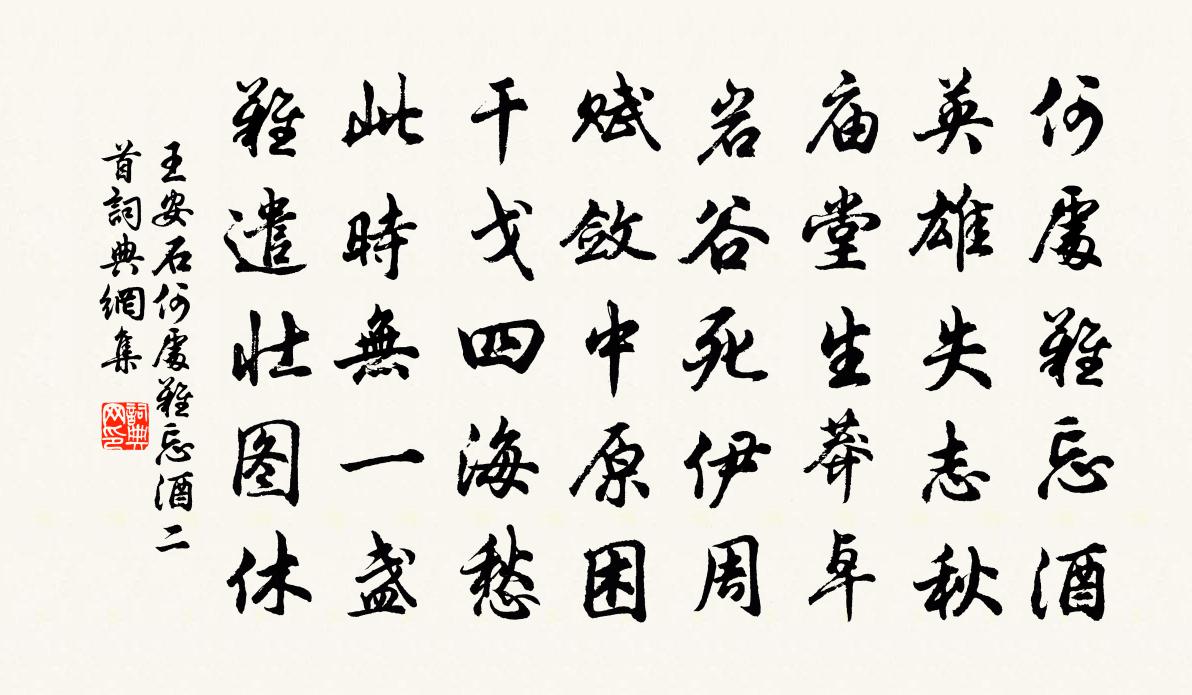 何處難忘酒
英雄失志秋
庙堂生莽卓
岩谷死伊周
賦斂中原困
干戈四海愁
此時無一盏
難遣壮图休
王安石何處難忘酒二
首詞典網集
詞典网印